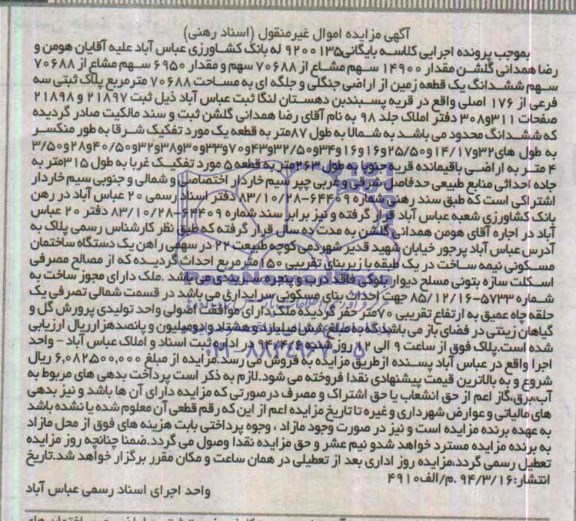 آگهی مزایده اموال غیرمنقول (اسناد رهنی)
بموجب پرونده اجرایی کلاسه بایگانی ۹۲۰۰۱۳۵ له بانک کشاورزی عباس آباد علیه آقایان هومن و
رضا همدانی گلشن مقدار ۱۴۹۰۰ سهم مشاع از ۷۰۶۸۸ سهم و مقدار ۶۹۵۰ سهم مشاع از ۷۰۶۸۸
سهم ششدانگ یک قطعه زمین از اراضی جنگلی و جلگه ای به مساحت ۷۰۶۸۸ مترمربع پلاک ثبتی سه
فرعی از ۱۷۶ اصلی واقع در قریه پسندبن دهستان لنگا ثبت عباس آباد ذیل ثبت ۲۱۸۹۷ و ۲۱۸۹۸
صفحات ۳۱۱و۳۰۸ دفتر املاک جلد ۹۸ به نام آقای رضا همدانی گلشن ثبت و سند مالکیت صادر گردیده
که ششدانگ محدود می باشد به شمالا به طول ۸۷متر به قطعه یک مورد تفکیک شرقا به طور منکسر
به طول های ۳۲و۱۷و۱۴و۲۵/۵۰و۱۶و۱۶و۳۴و۳۲/۵۰و۴۳و۷۰و۳۳و۳۰و۳۸و۳۲و۴۰/۵۰و۲۸و۳/۵۰و
۴ متر به اراضی باقیمانده قریه جنوبا به طول ۲۶۳متر به قطعه ۵ مورد تفکیک غربا به طول ۳۱۵متر به
جاده احداثی منابع طبیعی حدفاصل شرقی و غربی چپر سیم خاردار اختصاصی و شمالی و جنوبی سیم خاردار
اشتراکی است که طبق سند رهنی شماره ۶۴۴۰۹-۸۳/۱۰/۲۸ دفتر اسناد رسمی ۲۰ عباس آباد در رهن
بانک کشاورزی شعبه عباس آباد قرار گرفته و نیز برابر سند شماره ۶۴۴۰۹-۸۳/۱۰/۲۸ دفتر ۲۰ عباس
آباد در اجاره آقای هومن همدانی گلشن به مدت ده سال قرار گرفته که طبق نظر کارشناس رسمی پلاک به
آدرس عباس آباد پرجور خیابان شهید قدیر شهردمی کوچه طبیعت ۲۲ در سهمی راهن یک دستگاه ساختمان
مسکونی نیمه ساخت در یک طبقه با زیربنای تقریبی ۱۵۰ متر مربع احداث گردیده که از مصالح مصرفی
اسکلت سازه بتونی مسلح دیوار بلوکی فاقد درب و پنجره سربندی می باشد .ملک دارای مجوز ساخت به
شماره ۵۷۳۳-۸۵/۱۲/۱۶ جهت احداث بنای مسکونی سرایداری می باشد در قسمت شمالی تصرفی یک
حلقه چاه عمیق به ارتفاع تقریبی ۷۰متر حفر گردیده ملک دارای موافقت اصولی واحد تولیدی پرورش گل و
گیاهان زینتی در فضای باز می باشد که به مبلغ شش میلیارد و هشتاد و دو میلیون و پانصدهزار ریال ارزیابی
شده است.پلاک فوق از ساعت ۹ الی ۱۲ روز شنبه در اداره ثبت اسناد و املاک عباس آباد - واحد
اجرا واقع در عباس آباد پسنده ازطریق مزایده به فروش می رسد.مزایده از مبلغ ۶,۰۸۲,۵۰۰,۰۰۰ ریال
شروع و به بالاترین قیمت پیشنهادی نقدا فروخته می شود.لازم به ذکر است پرداخت بدهی های مربوط به
آب،برق،گاز اعم از حق انشعاب یا حق اشتراک و مصرف درصورتی که مزایده دارای آن ها باشد و نیز بدهی
های مالیاتی و عوارض شهرداری و غیره تا تاریخ مزایده اعم از این که رقم قطعی آن معلوم شده یا نشده باشد
به عهده برنده مزایده است و نیز در صورت وجود مازاد ، وجوه پرداختی بابت هزینه های فوق از محل مازاد
به برنده مزایده مسترد خواهد شدو نیم عشر و حق مزایده نقدا وصول می گردد.ضمنا چنانچه روز مزایده
تعطیل رسمی گردد،مزایده روز اداری بعد از تعطیلی در همان ساعت و مکان مقرر برگزار خواهد شد.تاریخ
انتشار:۹۴/۳/۱۶ .م/الف ۴۹۱۰
واحد اجرای اسناد رسمی عباس آباد